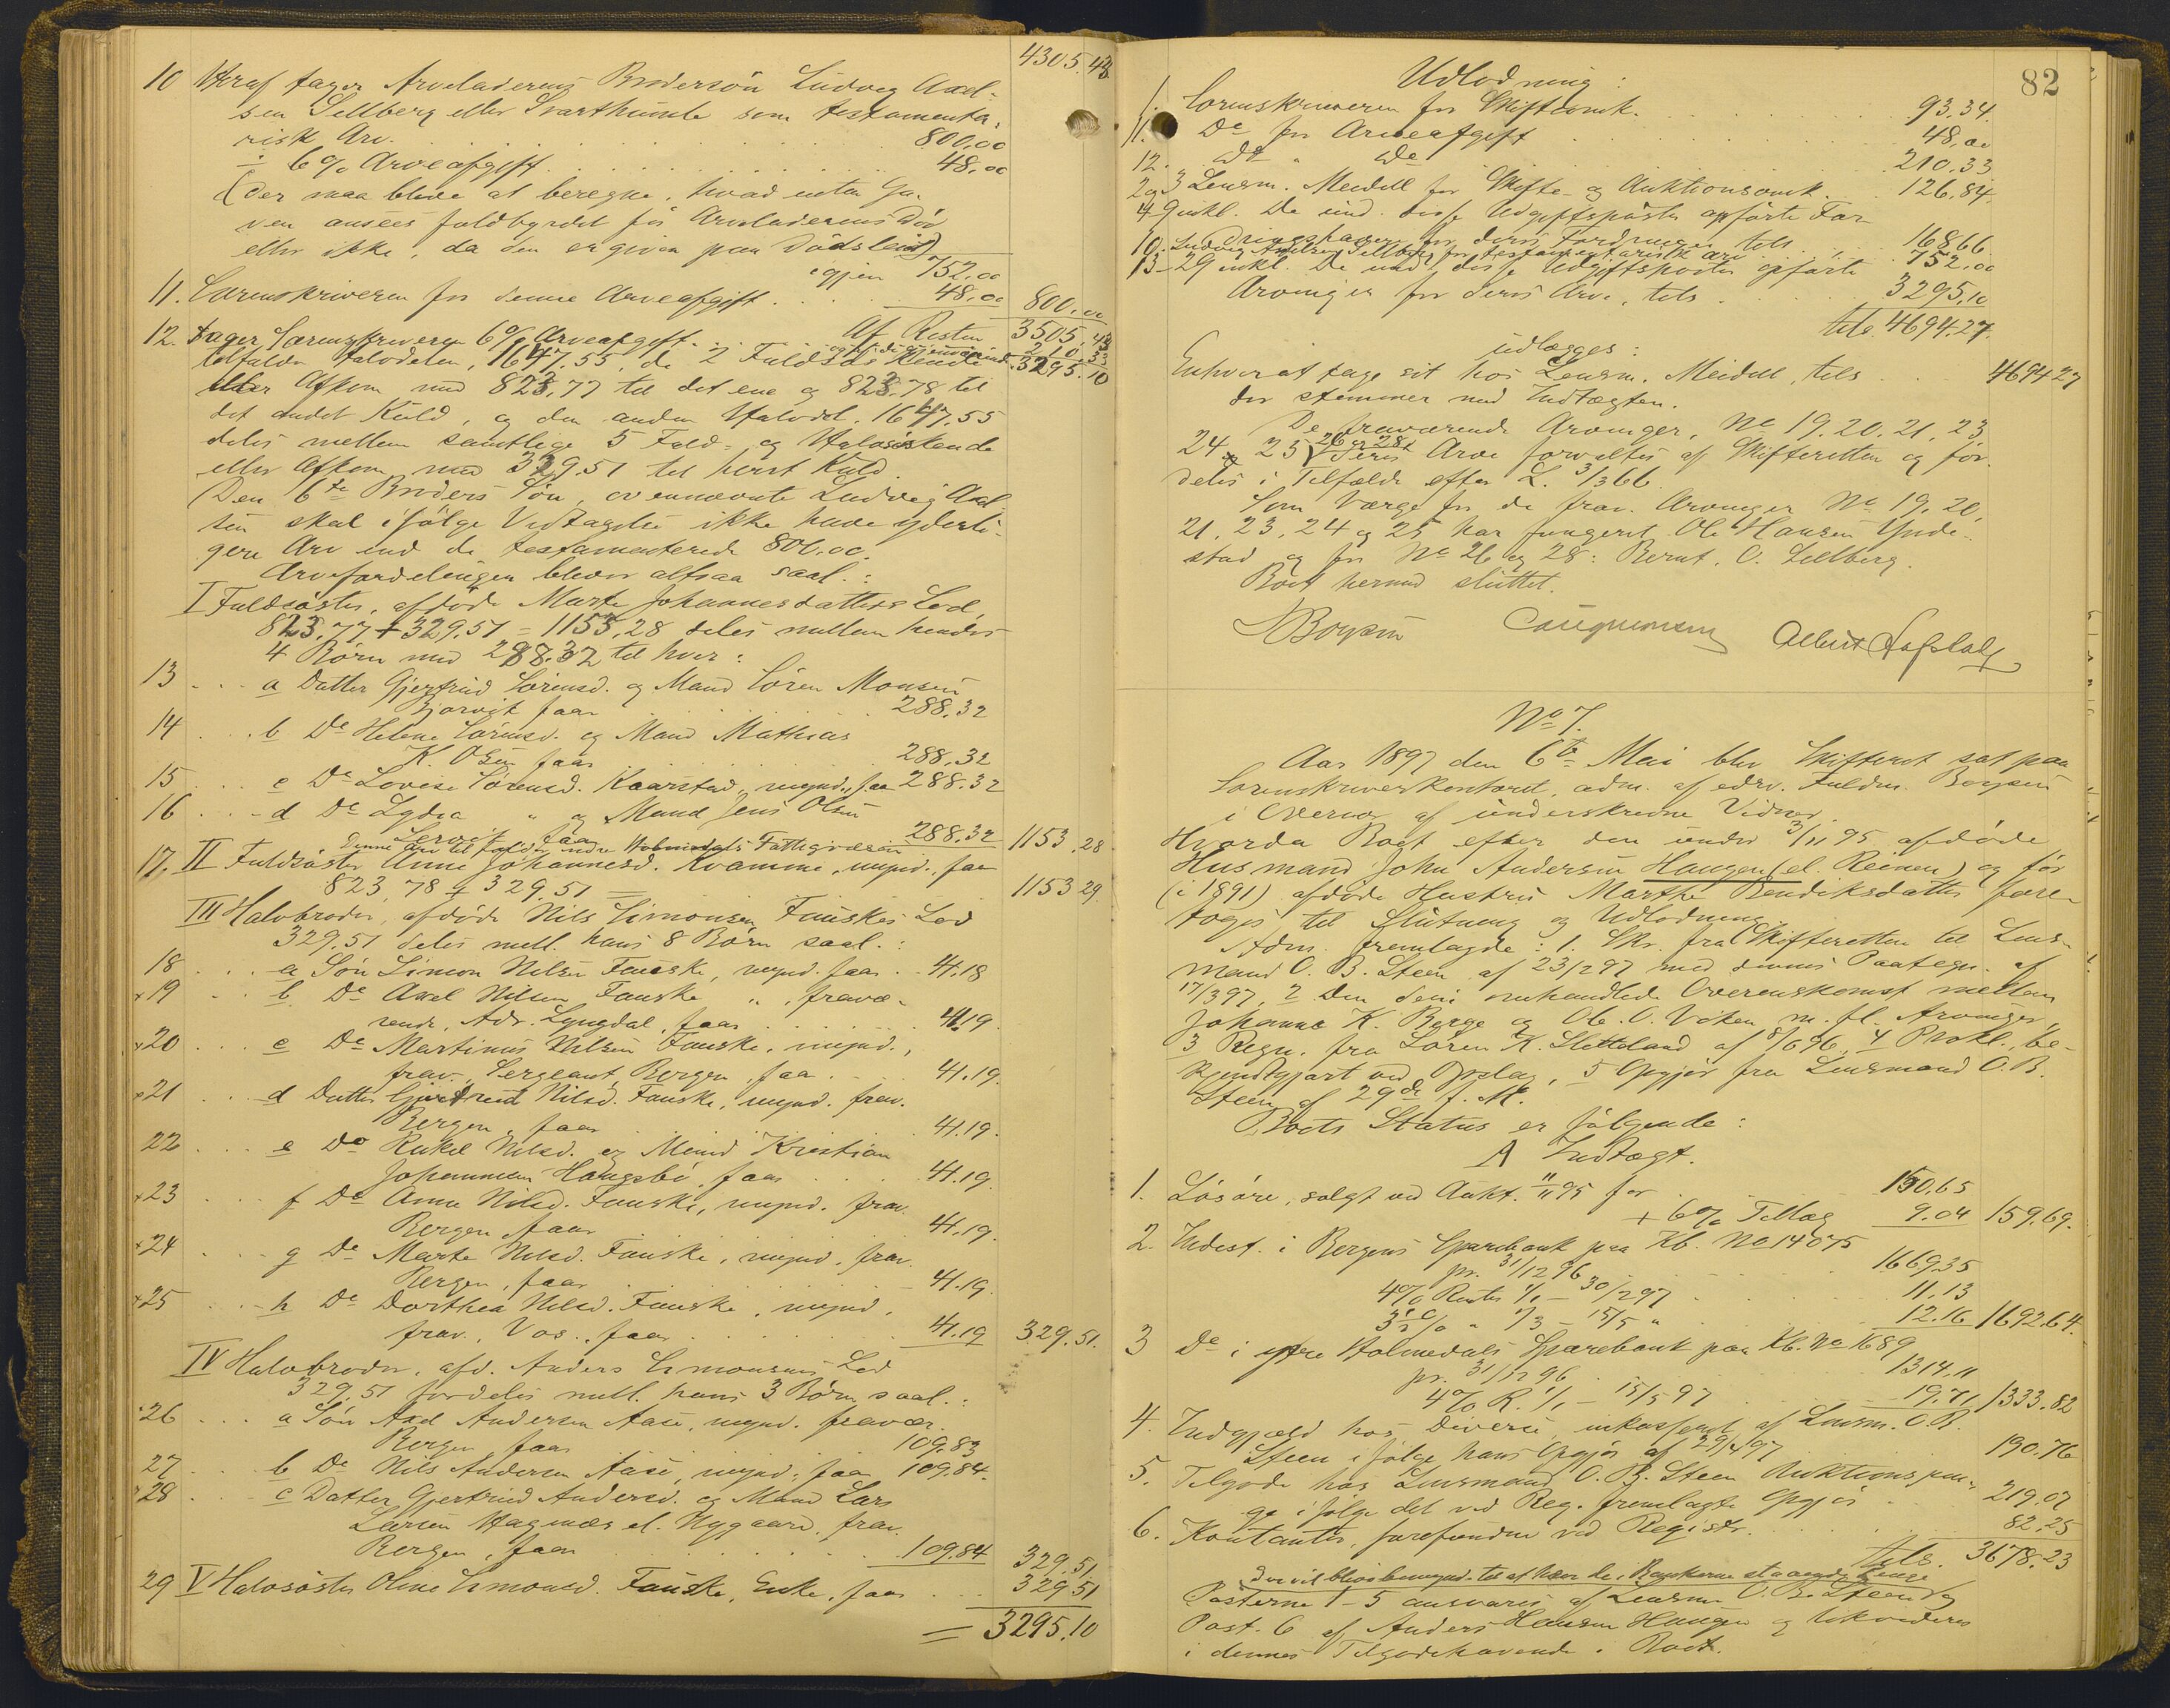 4305.43
10 Heraf tager Arveladerens Brodersön Ludvig Axel-
sen Sellberg eller Svarthumle som testamenta-
risk Arv. 800,00
÷ 6% Arveafgift 48,00
(Der maa blive at beregne, hvad enten Ga-
ven ansees fuldbyrdet før Arveladerens Död
eller ikke, da den er given paa Dödsleiet)
igjen 752,00
11. Sorenskriveren for denne Arveafgift 48,00 800,00
Af Resten 3505,43
12. tager Sorenskriveren 6% Arveafgift 210.33
3295.10
Halvdelen, 1647,55, de 2 Fuldsöskende
eller Afkom med 823,77 til det ene og 823.78 til
det andet Kuld, og den anden Halvdel, 1647,55
deles mellem samtlige 5 Fuld- og Halvsöskende
eller Afkom med 329.51 til hvert Kuld.
(Den 6te Broders Sön, ovennævnte Ludvig Axel-
sen skal ifölge Vedtagelse ikke have yderli-
gere Arv end de testamenterede 800.00.
Arvefordelingen bliver altsaa saal.:
I Fuldsöster, afdöde Marte Johannesdatters Lod,
823,77 + 329,51 = 1153,28 deles mellem hendes
4 Börn med 288.32 til hver:
13 a Datter Gjertrud Sörensd. og Mand Sören Monsen
Bjorvik faar 288.32
14 b Do Helene Sörensd. og Mand Mathias
K. Olsen faar 288,32
15 c Do Lovise Sörensd. Kaarstad, mynd., faar 288.32
16 d Do Lydia " og Mand Jens Olsen
Lervik faar 288.32 1153.28
Denne Arv tilfalder indre Holmedals Fattigvæsen
17. II Fuldsöster Anne Johannesd. Kvamme, mynd., faar
823,78 + 329,51 = 1153 29.
III Halvbroder, afdöde Nils Simonsen Fauskes Lod
329.51 deles mell. hans 8 Börn saal.:
18 a Sön Simon Nilsen Fauske, mynd. faar 41.18
x19 b Do Axel Nilsen Fauske " , fravæ-
rende, Adr. Lyngdal, faar 41.19
x20 c Do Martinus Nilsen Fauske, mynd.,
frav., Sergeant, Bergen, faar 41.19.
x21 d Datter Gjertrud Nilsd. Fauske, mynd. frav.
Bergen, faar 41.19.
22 e Do Rakel Nilsd. og Mand Kristian
Johannesen Haugsbö, faar 41.19.
x23 f Do Anna Nilsd. Fauske, mynd. frav.
Bergen faar 41.19.
x24 g Do Marte Nilsd. Fauske, mynd. frav.
Bergen, faar 41.19.
x25 h Do Dorthea Nilsd. Fauske, mynd.
frav., Vos., faar 41.19 329.51.
IV Halvbroder, afd. Anders Simonsens Lod
329,51 fordeles mell. hans 3 Börn saal.:
x26 a Sön Axel Andersen Aase, mynd. fravær.
Bergen faar 109.83
27 b Do Nils Andersen Aase, mynd., faar 109.84.
x28 c Datter Gjertrud Andersd. og Mand Lars
Larsen Hagenæs el. Nygaard, frav.
Bergen, faar 109.84 329.51.
29 V Halvsöster Oline Simonsd. Fauske, Enke, faar 329 51
= 3295.10
82
Udlodning:
1. Sorenskriveren for Skifteomk. 93.34.
11. Do for Arveafgift 48,00
12. Do " Do 210.33
2 og 3 Lensm. Meidell for Skifte- og Auktionsomk. 126,84.
4-9 inkl. De und. disse Udgiftsposter opförte For-
dringshavere for deres Fordringer tils. 168 66
10. Ludvig Axelsen Sellberg for testamentarisk arv 752,00
13-29 inkl. De und. disse Udgiftsposter opförte
Arvinger for deres Arv, tils 3295,10
tils. 4694.27.
udlægges:
Enhver at tage sit hos Lensm. Meidell, tils 4694 27
der stemmer med Indtægten.
De fraværende Arvinger, No 19. 20. 21. 23.
24, 25, 26 og 28s Arv forvaltes af Skifteretten og for-
deles i Tilfælde efter L. 3/3 66.
Som Værge for de frav. Arvinger No 19, 20,
21, 23, 24 og 25 har fungeret Ole Hansen Ynde-
stad og for No 26 og 28: Bernt. O. Sellberg.
Boet hermed sluttet.
Boysen
No 7.
Aar 1897 den 6te Mai blev Skifteret sat paa
Sorenskriverkontoret, adm. af edsv. Fuldm. Boysen
i Overvær af underskrevne Vidner.
Hvorda Boet efter den under 3/11 95 afdöde
Husmand John Andersen Haugen (el. Reinen) og för
(i 1891) afdöde Hustru Marthe Bendiksdatter fore-
toges til Slutning og Udlodning.
Adm. fremlagde: 1. Skr. fra Skifteretten til Lens-
mand O. B. Steen af 23/2 97 med dennes Paategn. af
17/3 97, 2 Den deri omhandlede Overenskomst mellem
Johanna K. Berge og Ole O. Viken m. fl. Arvinger,
3 Regn. fra Sören K. Sletteland af 8/6 96, 4 Prokl. be-
kjendtgjort ved Opslag, 5 Opgjör fra Lensmand O. B.
Steen af 29de f. M.
Boets Status er fölgende:
A Indtægt.
1. Lösöre, solgt ved Aukt. 11/11 95 for 150.65
+ 6% Tillæg 9.04 159.69.
2. Indest. i Bergens Sparebank paa Kb. No 14075
pr. 31/12 96 1669.35
4% Renter 1/1 - 30/2 97 11.13
3½% " 1/3 - 15/5 " 12.16 1692.64.
3 Do i ytre Holmedals Sparebank paa Kb. No 1689
pr. 31/12 96 1314.11
4% R. 1/1 - 15/5 97 19.71 1333.82
4. Indgjæld hos Diverse inkasseret af Lensm. O. B.
Steen ifölge hans Opgjör af 29/4 97 190.76
5. Tilgode hos Lensmand O. B. Steen Auktionspen-
ge ifölge det ved Reg. fremlagte Opgjör 219.07
6. Kontanter, forefundne ved Registr. 82.25
tils. 3678.23
Der vil blive bemynd. til at hæve de i Bankerne staaende Penge
Posterne 1-5 ansvares af Lensm. O. B. Steen og
Post. 6 af Anders Hansen Haugen og likvideres
i dennes Tilgodehavende i Boet.